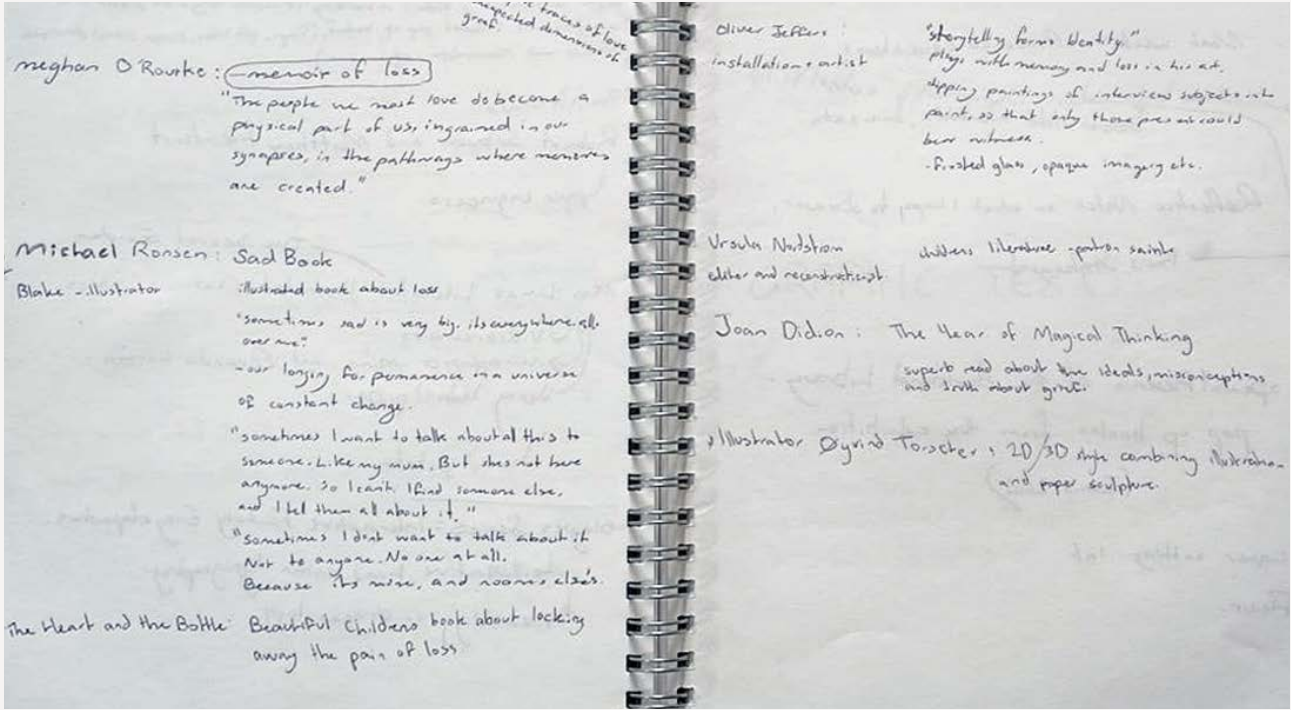 traces of love
dimensions of
grief.
meghan O'Rourke: - memoir of loss
"The people we most love do become a
physical part of us, ingrained in our
synapses, in the pathways where memories
are created."
Michael Ronsen: Sad Book
Blake - illustrator illustrated book about loss
"sometimes sad is very big. its everywhere. all
over me."
- our longing for permanence in a universe
of constant change.
"sometimes I want to talk about all this to
someone. Like my mum. But shes not here
anymore. So I can't. I find someone else.
and I tell them all about it."
"sometimes I dont want to talk about it
Not to anyone. No one at all.
Because its mine, and noone elses.
The Heart and the Bottle: Beautiful Childrens book about locking
away the pain of loss
Oliver Jeffers: "storytelling forms identity."
installation + artist plays with memory and loss in his art,
dipping paintings of interview subjects into
paint, so that only those present could
bear witness.
- frosted glass, opaque imagery etc.
Ursula Nordstrom childrens literature - patron saint
editor and reconstructionist.
Joan Didion: The Year of Magical Thinking
superb read about the ideals, misconceptions
and truth about grief.
Illustrator Øyvind Torseter: 2D/3D style combining illustration
and paper sculpture.